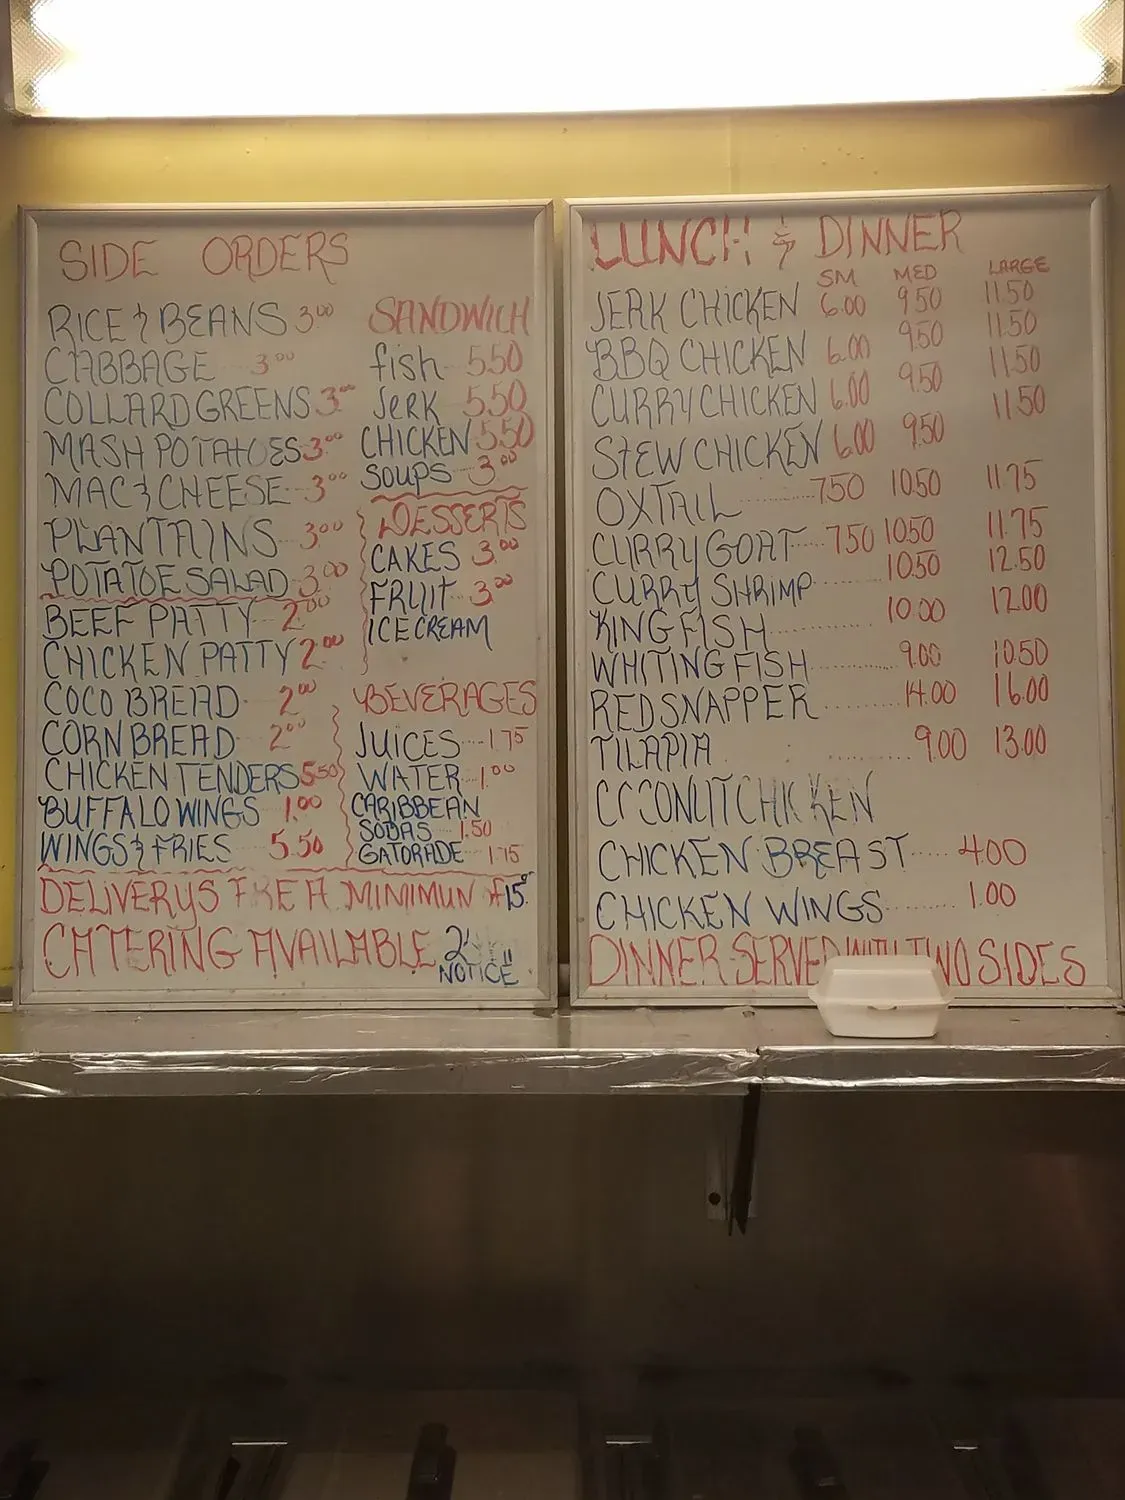 SIDE ORDERS
RICE & BEANS 3.00
CABBAGE 3.00
COLLARD GREENS 3.00
MASH POTATOES 3.00
MAC & CHEESE 3.00
PLANTAINS 3.00
POTATOE SALAD 3.00
BEEF PATTY 2.00
CHICKEN PATTY 2.00
COCO BREAD 2.00
CORN BREAD 2.00
CHICKEN TENDERS 5.50
BUFFALO WINGS 1.00
WINGS & FRIES 5.50
SANDWICH
fish 5.50
JERK 5.50
CHICKEN 5.50
SOUPS 3.00
DESSERTS
CAKES 3.00
FRUIT 3.00
ICE CREAM
BEVERAGES
JUICES 1.75
WATER 1.00
CARIBBEAN
SODAS 1.50
GATORADE 1.75
DELIVERYS FREE A MINIMUN OF 15
CATERING AVAILABLE
NOTICE
LUNCH & DINNER
SM MED LARGE
JERK CHICKEN 6.00 9.50 11.50
BBQ CHICKEN 6.00 9.50 11.50
CURRY CHICKEN 6.00 9.50 11.50
STEW CHICKEN 6.00 9.50 11.50
OXTAIL 7.50 10.50 11.75
CURRY GOAT 7.50 10.50 11.75
CURRY SHRIMP 10.50 12.50
KING FISH 10.00 12.00
WHITING FISH 9.00 10.50
RED SNAPPER 14.00 16.00
TILAPIA 9.00 13.00
COCONUT CHICKEN
CHICKEN BREAST 4.00
CHICKEN WINGS 1.00
DINNER SERVED WITH TWO SIDES